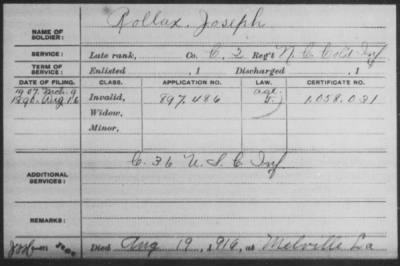 NAME OF SOLDIER: Rollax, Joseph
SERVICE: Late rank, Co. C, 2 Reg't N. C. Cold Inf
TERM OF SERVICE: Enlisted , 1 Discharged , 1
DATE OF FILING. CLASS. APPLICATION NO. LAW. CERTIFICATE NO.
Invalid, 897,486 1,058,031
1890. Aug. 16
Widow,
Minor,
C. 36 U. S. C. Inf
ADDITIONAL SERVICES:
REMARKS:
Died Aug 19, 1916, at Melville La